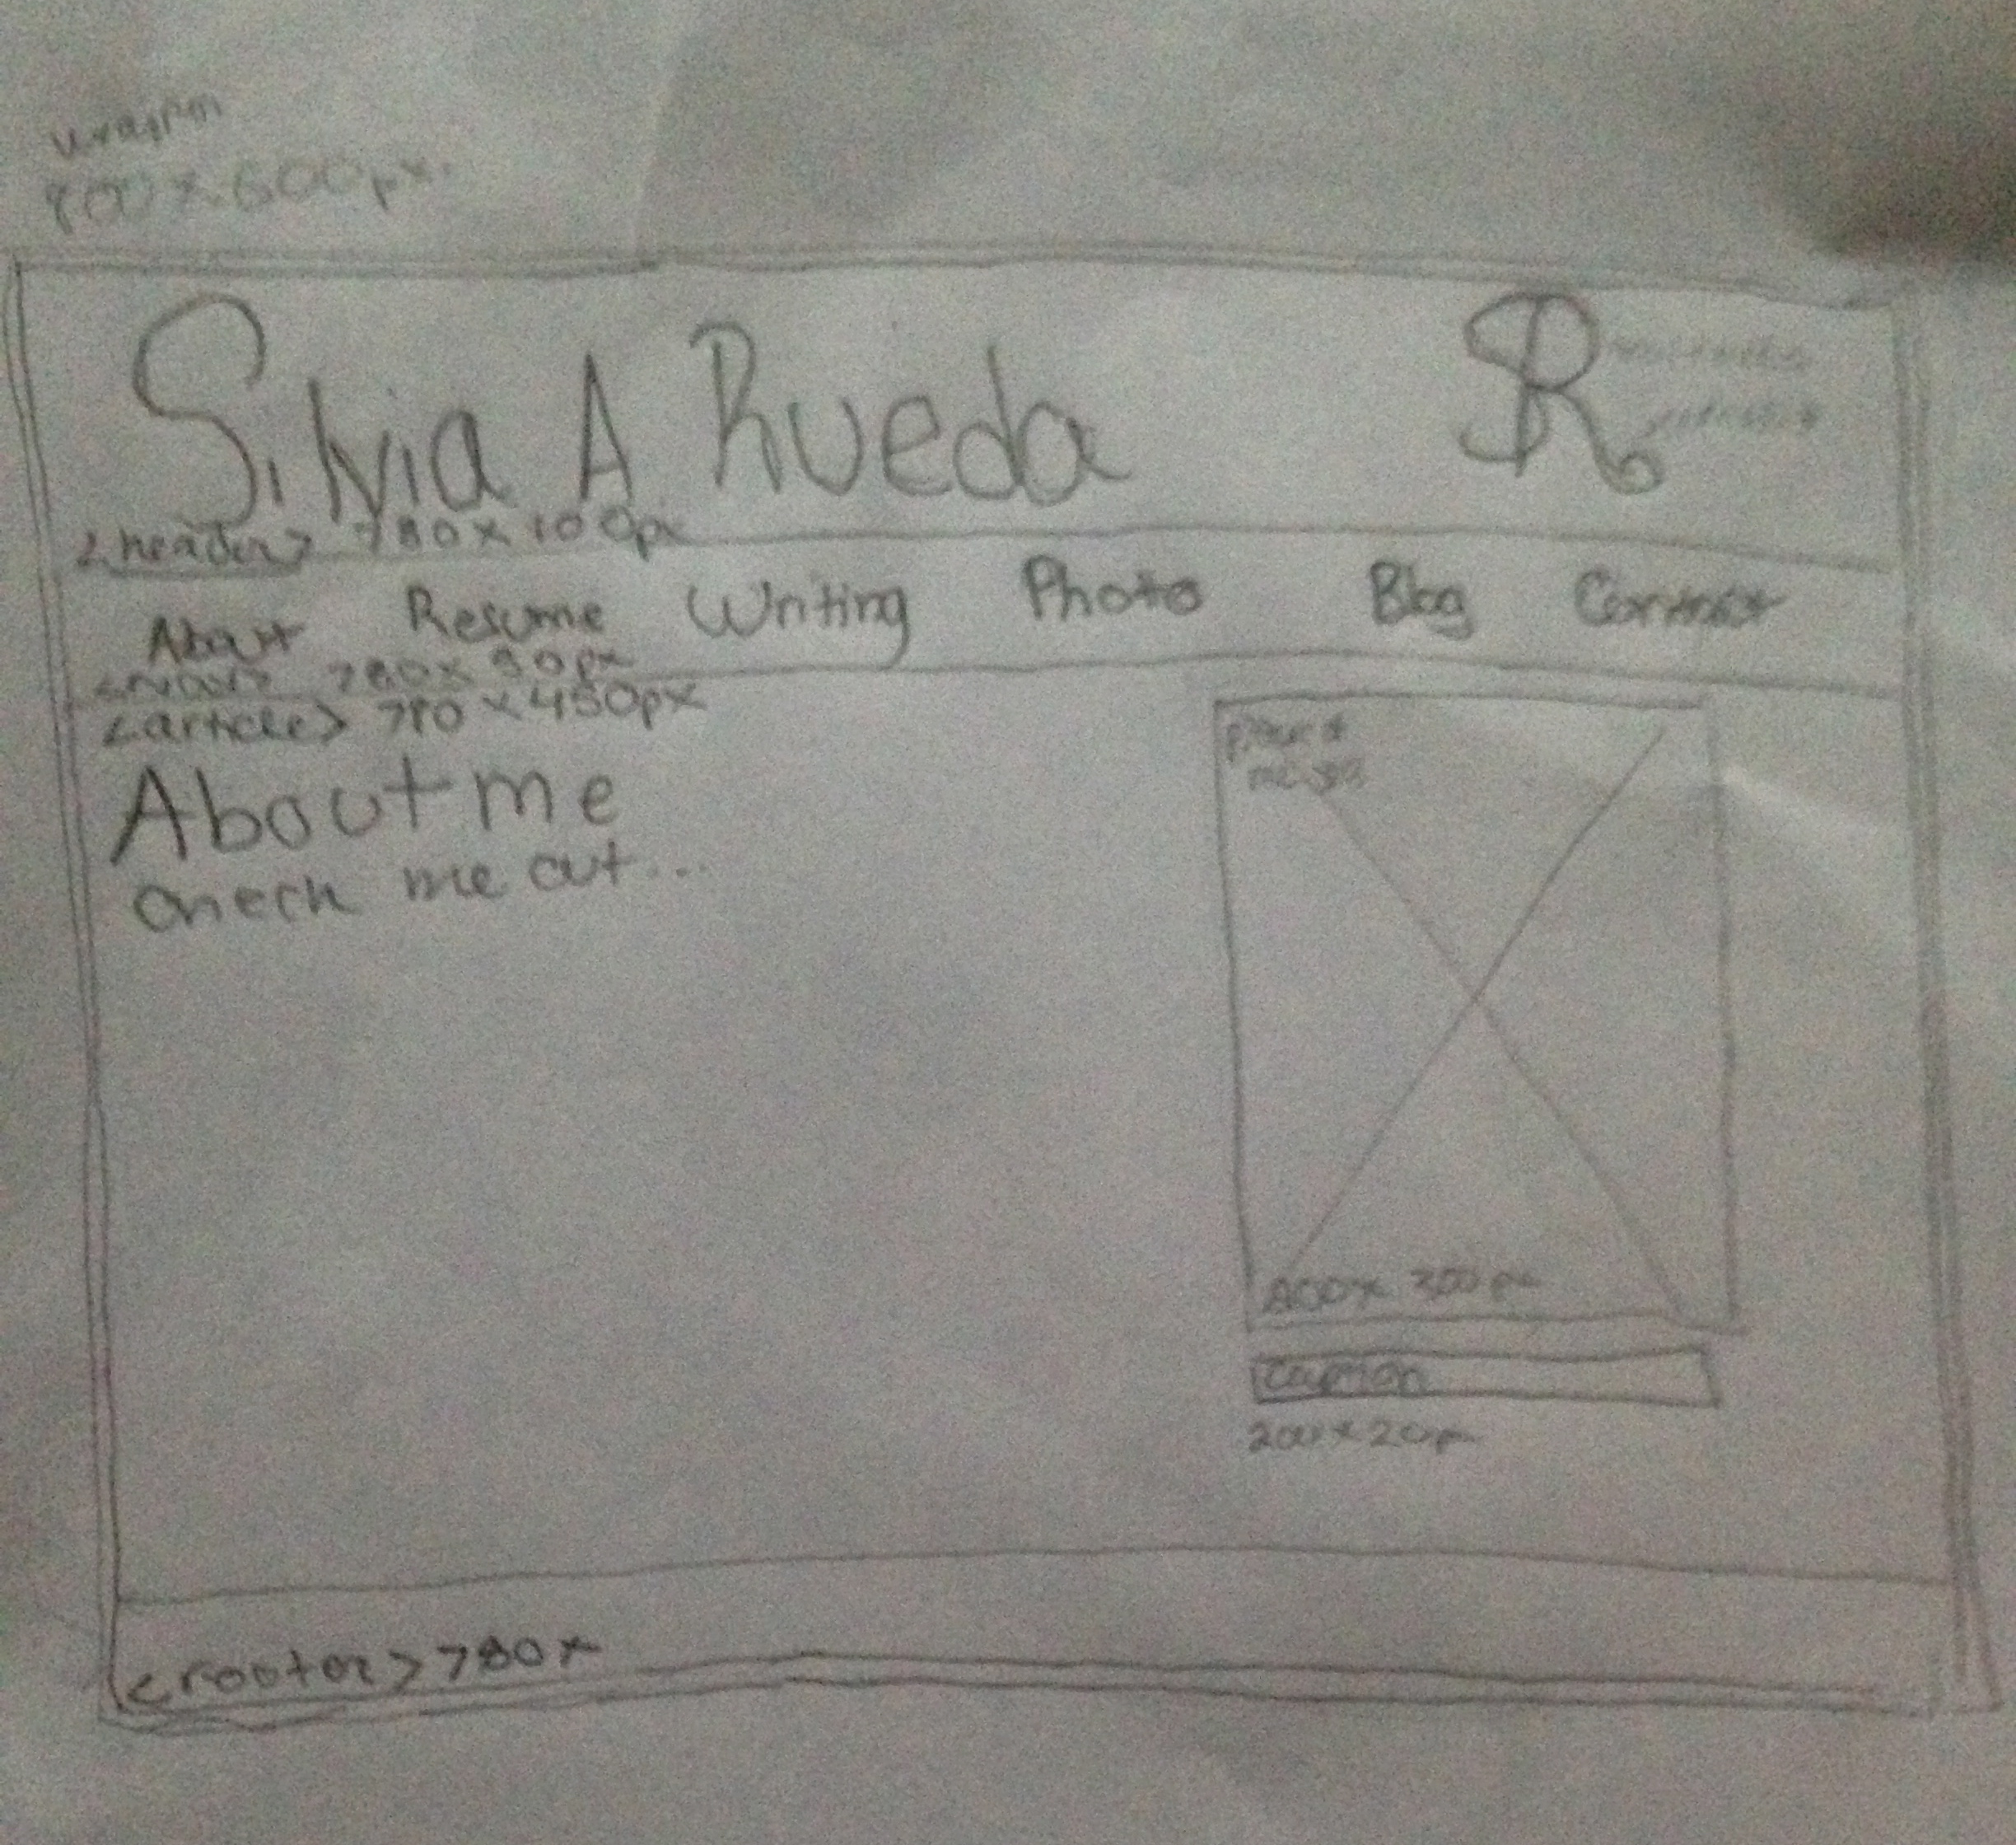 800x600px.
Silvia A Rueda
SR
<header> 780x100px
About Resume Writing Photo Blog Contact
<nav> 780x50px
<article> 780x450px
About me
Check me out...
300px
Caption
200x20px
<footer> 780x